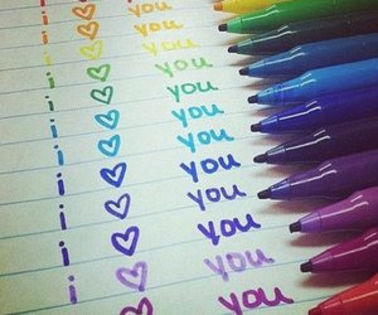 i ♡ you
i ♡ you
i ♡ you
i ♡ you
i ♡ you
i ♡ you
i ♡ you
i ♡ you
i ♡ you
i ♡ you
i ♡ you
♡ you